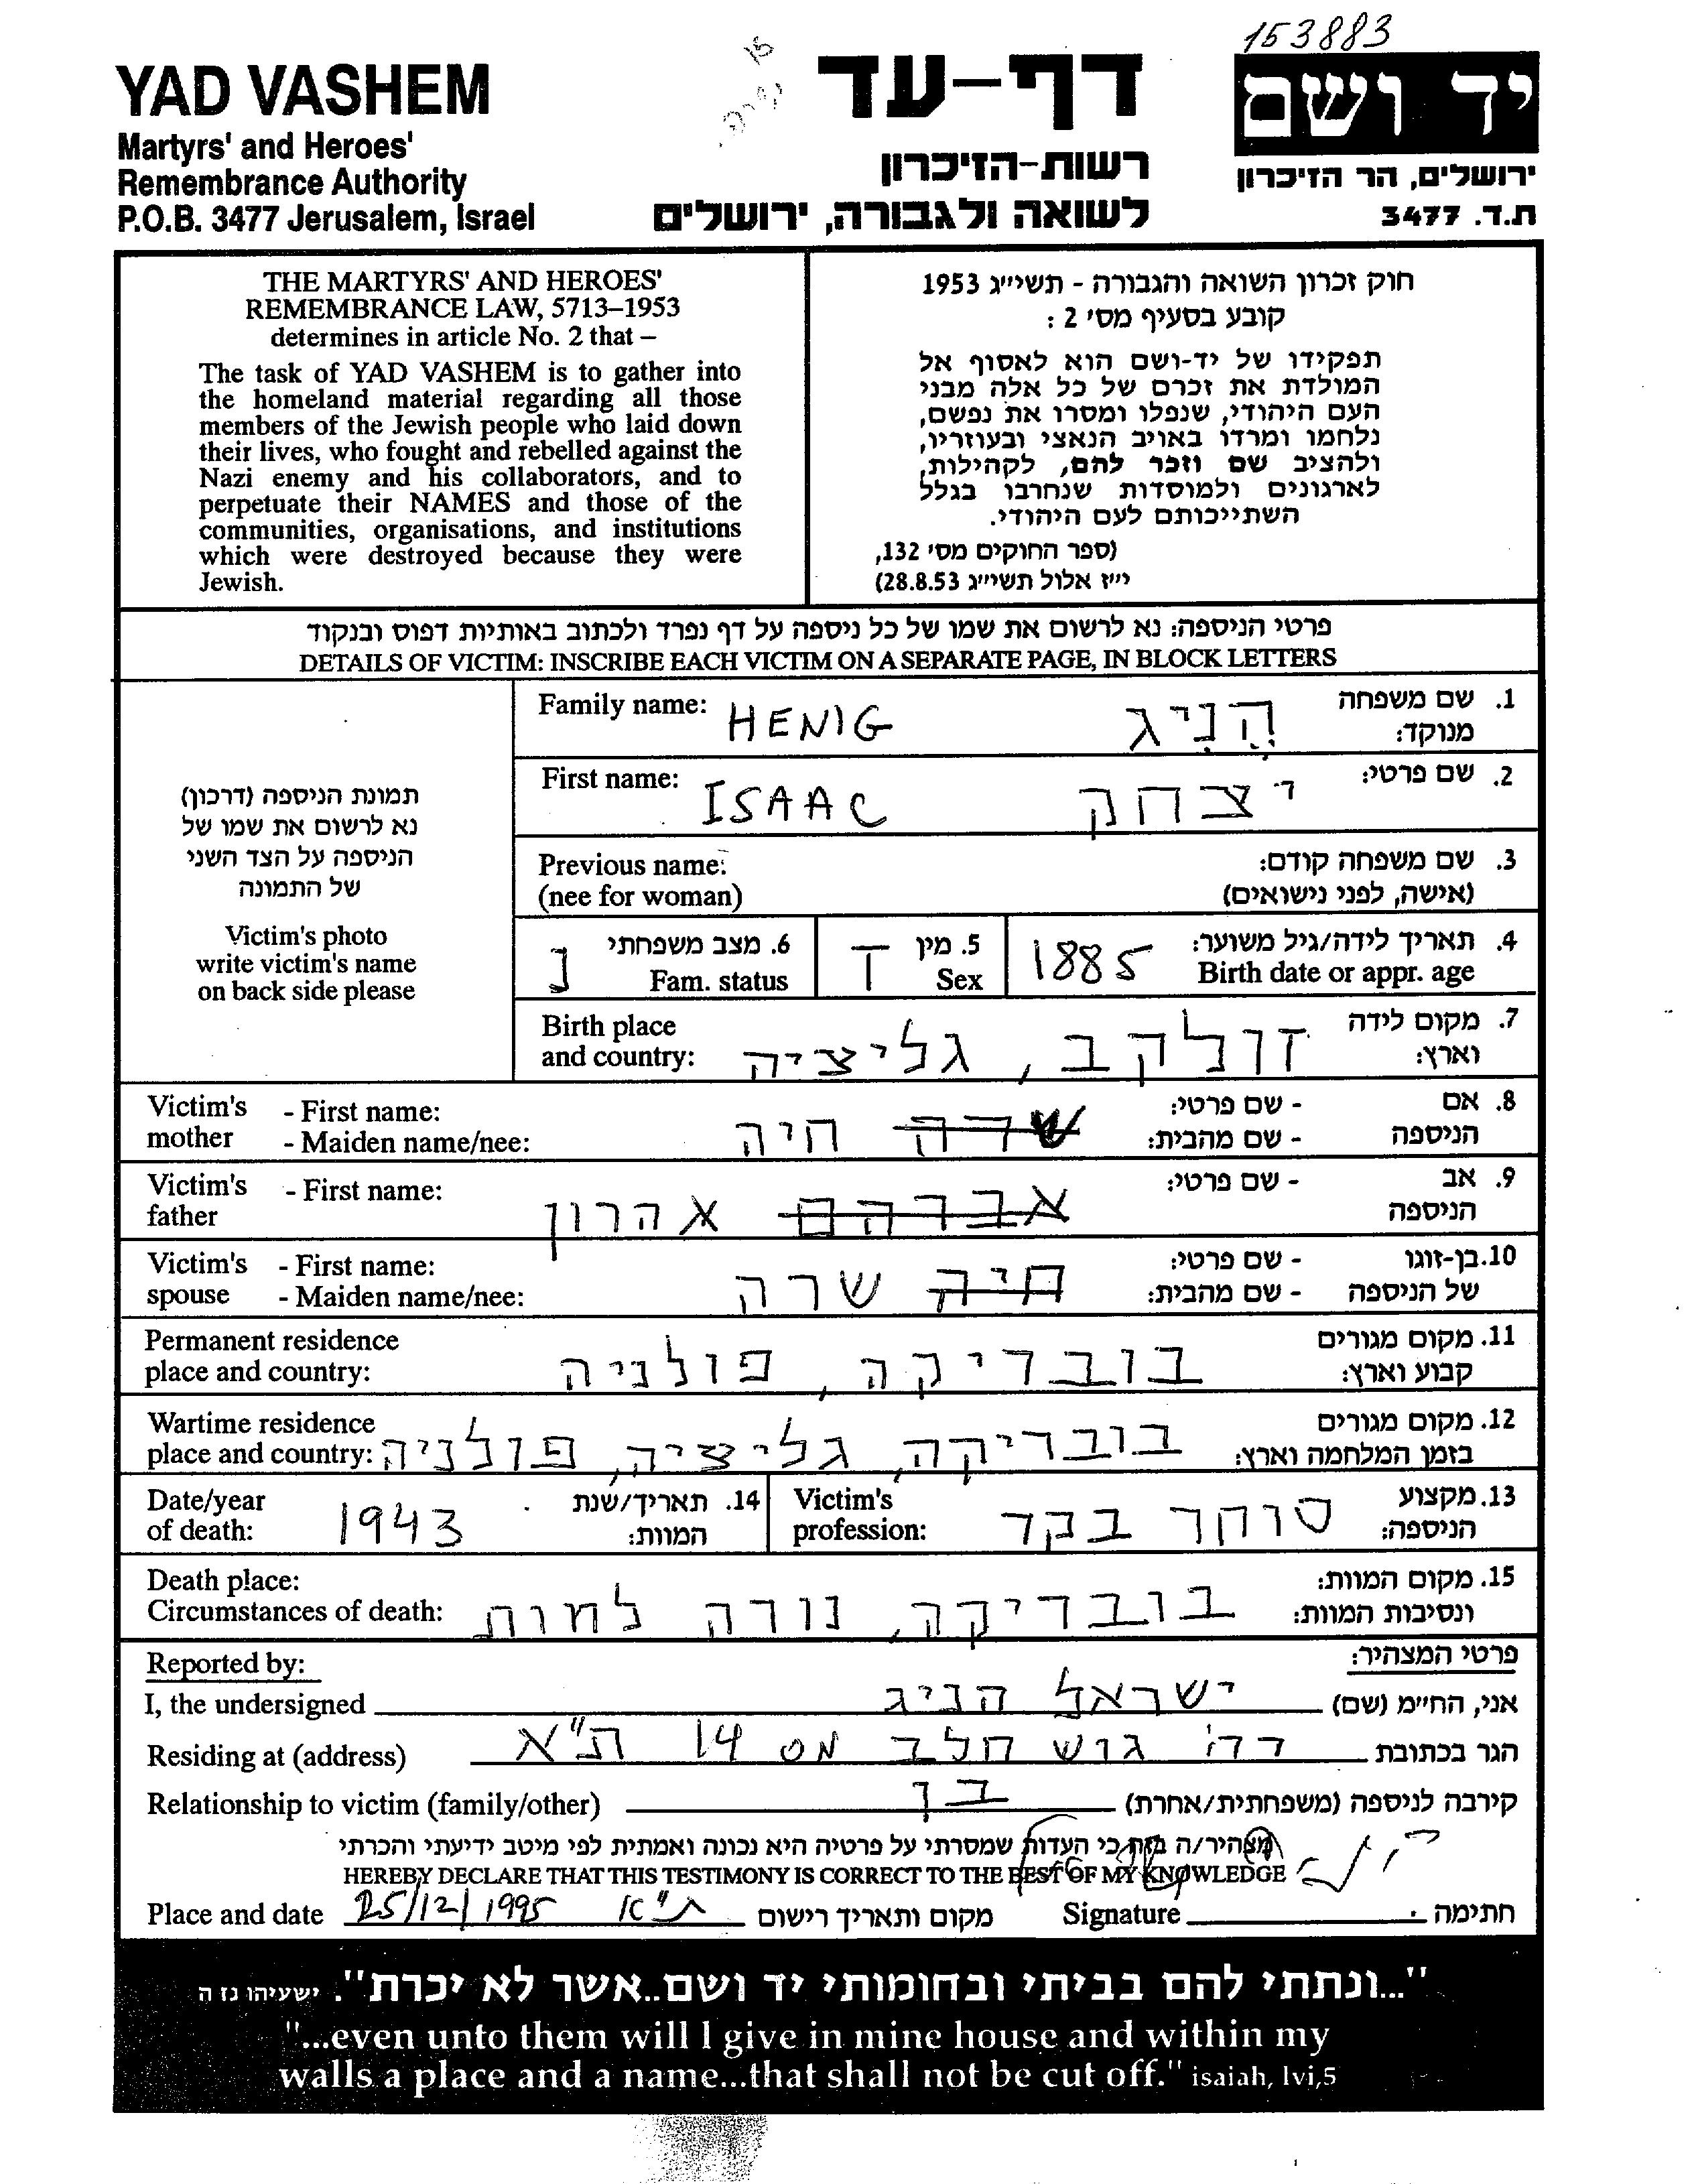 153883
YAD VASHEM
Martyrs' and Heroes'
Remembrance Authority
P.O.B. 3477 Jerusalem, Israel
15
דף-עד
רשות-הזיכרון
לשואה ולגבורה, ירושלים
יד ושם
ירושלים, הר הזיכרון
ת.ד. 3477
THE MARTYRS' AND HEROES'
REMEMBRANCE LAW, 5713–1953
determines in article No. 2 that –
The task of YAD VASHEM is to gather into
the homeland material regarding all those
members of the Jewish people who laid down
their lives, who fought and rebelled against the
Nazi enemy and his collaborators, and to
perpetuate their NAMES and those of the
communities, organisations, and institutions
which were destroyed because they were
Jewish.
חוק זכרון השואה והגבורה - תשי״ג 1953
קובע בסעיף מס׳ 2 :
תפקידו של יד-ושם הוא לאסוף אל
המולדת את זכרם של כל אלה מבני
העם היהודי, שנפלו ומסרו את נפשם,
נלחמו ומרדו באויב הנאצי ובעוזריו,
ולהציב שם וזכר להם, לקהילות,
לארגונים ולמוסדות שנחרבו בגלל
השתייכותם לעם היהודי.
(ספר החוקים מס׳ 132,
י״ז אלול תשי״ג 28.8.53)
פרטי הניספה: נא לרשום את שמו של כל ניספה על דף נפרד ולכתוב באותיות דפוס ובנקוד
DETAILS OF VICTIM: INSCRIBE EACH VICTIM ON A SEPARATE PAGE, IN BLOCK LETTERS
תמונת הניספה (דרכון)
נא לרשום את שמו של
הניספה על הצד השני
של התמונה
Victim's photo
write victim's name
on back side please
Family name: HENIG הֶנִיג 1. שם משפחה
מנוקד:
First name: ISAAC יצחק 2. שם פרטי:
Previous name: 3. שם משפחה קודם:
(nee for woman) (אישה, לפני נישואים)
4. תאריך לידה/גיל משוער: 1885 5. מין ז 6. מצב משפחתי נ
Birth date or appr. age Sex Fam. status
Birth place 7. מקום לידה
and country: זולקב, גליציה וארץ:
Victim's - First name: - שם פרטי: 8. אם
mother - Maiden name/nee: שרה חיה - שם מהבית: הניספה
Victim's - First name: - שם פרטי: 9. אב
father אברהם אהרון הניספה
Victim's - First name: - שם פרטי: 10. בן-זוגו
spouse - Maiden name/nee: חיה שרה - שם מהבית: של הניספה
Permanent residence 11. מקום מגורים
place and country: בובריקה, פולניה קבוע וארץ:
Wartime residence 12. מקום מגורים
place and country: בובריקה, גליציה, פולניה בזמן המלחמה וארץ:
Date/year 14. תאריך/שנת Victim's 13. מקצוע
of death: 1943 המוות: profession: סוחר בקר הניספה:
Death place: 15. מקום המוות:
Circumstances of death: בובריקה, נורה למות ונסיבות המוות:
Reported by: פרטי המצהיר:
I, the undersigned ישראל הניג אני, החי״מ (שם)
Residing at (address) רח' גוש חלב מס 14 ת"א הגר בכתובת
Relationship to victim (family/other) בן קירבה לניספה (משפחתית/אחרת)
מצהיר/ה בזה כי העדות שמסרתי על פרטיה היא נכונה ואמתית לפי מיטב ידיעתי והכרתי
HEREBY DECLARE THAT THIS TESTIMONY IS CORRECT TO THE BEST OF MY KNOWLEDGE
Place and date 25/12/1995 ת"א מקום ותאריך רישום Signature חתימה
"...ונתתי להם בביתי ובחומותי יד ושם..אשר לא יכרת". ישעיהו נז ה
"...even unto them will I give in mine house and within my
walls a place and a name...that shall not be cut off." isaiah, lvi,5